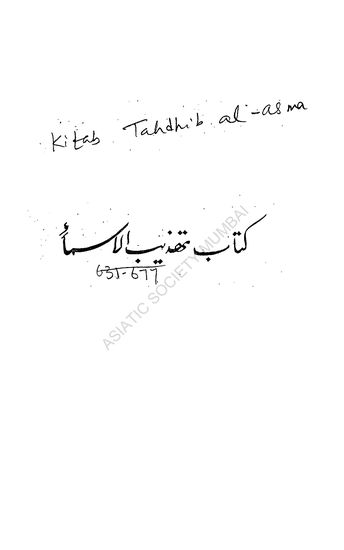 Kitab Tahdhib al-asma
کتاب تهذیب الاسمأ
631-677
ASIATIC SOCIETY MUMBAI